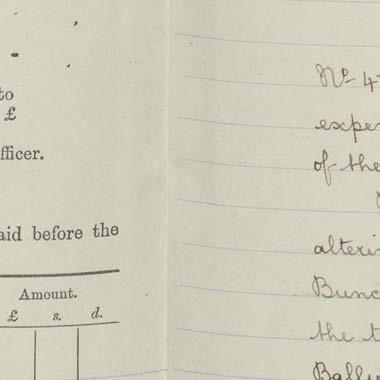 to
£
fficer.
aid before the
Amount.
£ s. d.
No 4
exper
of the
alterin
Bunc
the t
Bally